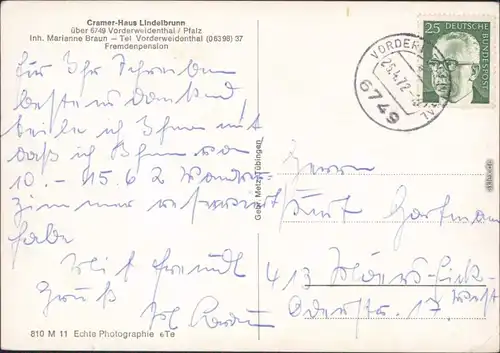 Cramer-Haus Lindelbrunn
über 6749 Vorderweidenthal / Pfalz
Inh. Marianne Braun – Tel Vorderweidenthal (06398) 37
Fremdenpension
Für Ihr Schreiben
bestens dankend,
teile ich Ihnen mit
daß ich Ihnen vom
10. – 15.6 2
zimmer reserviert
habe
Mit freundl
Gruß
810 M 11 Echte Photographie
Gebr. Metz, Tübingen
25
DEUTSCHE
BUNDESPOST
6749
Herrn
Kurt Hartmann
413
17.